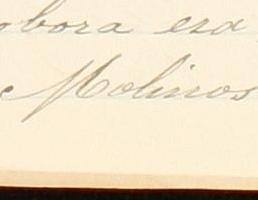 obora era
Molinos